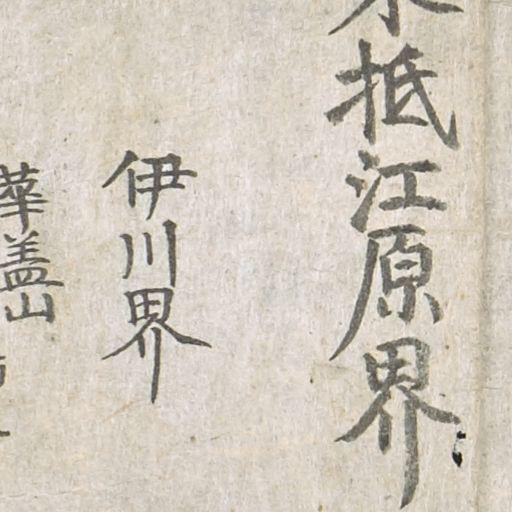 抵江原界
伊川界
華盖山